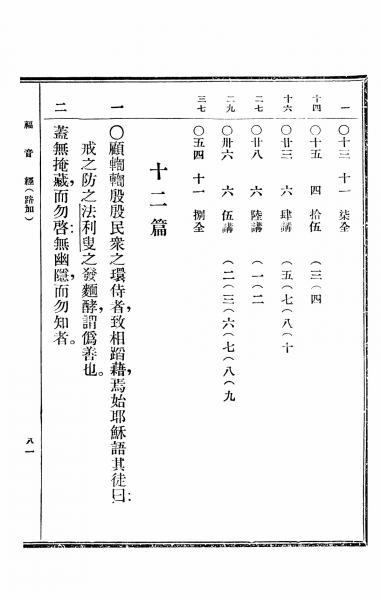 一　〇十三　十一　柒全
十四　〇十五　四　拾伍　（三（四
十六　〇廿三　六　肆講　（五（七（八（十
二七　〇廿八　六　陸講　（一（二
二九　〇卅六　六　伍講　（二（三（六（七（八（九
三七　〇五四　十一　捌全
十二篇
一　〇顧輷輷殷殷民衆之環侍者，致相蹈藉，焉始耶穌語其徒曰：
戒之防之法利叟之發麵酵，謂僞善也。
二　蓋無掩藏，而勿啓：無幽隱，而勿知者。
福音經（路加）
八一